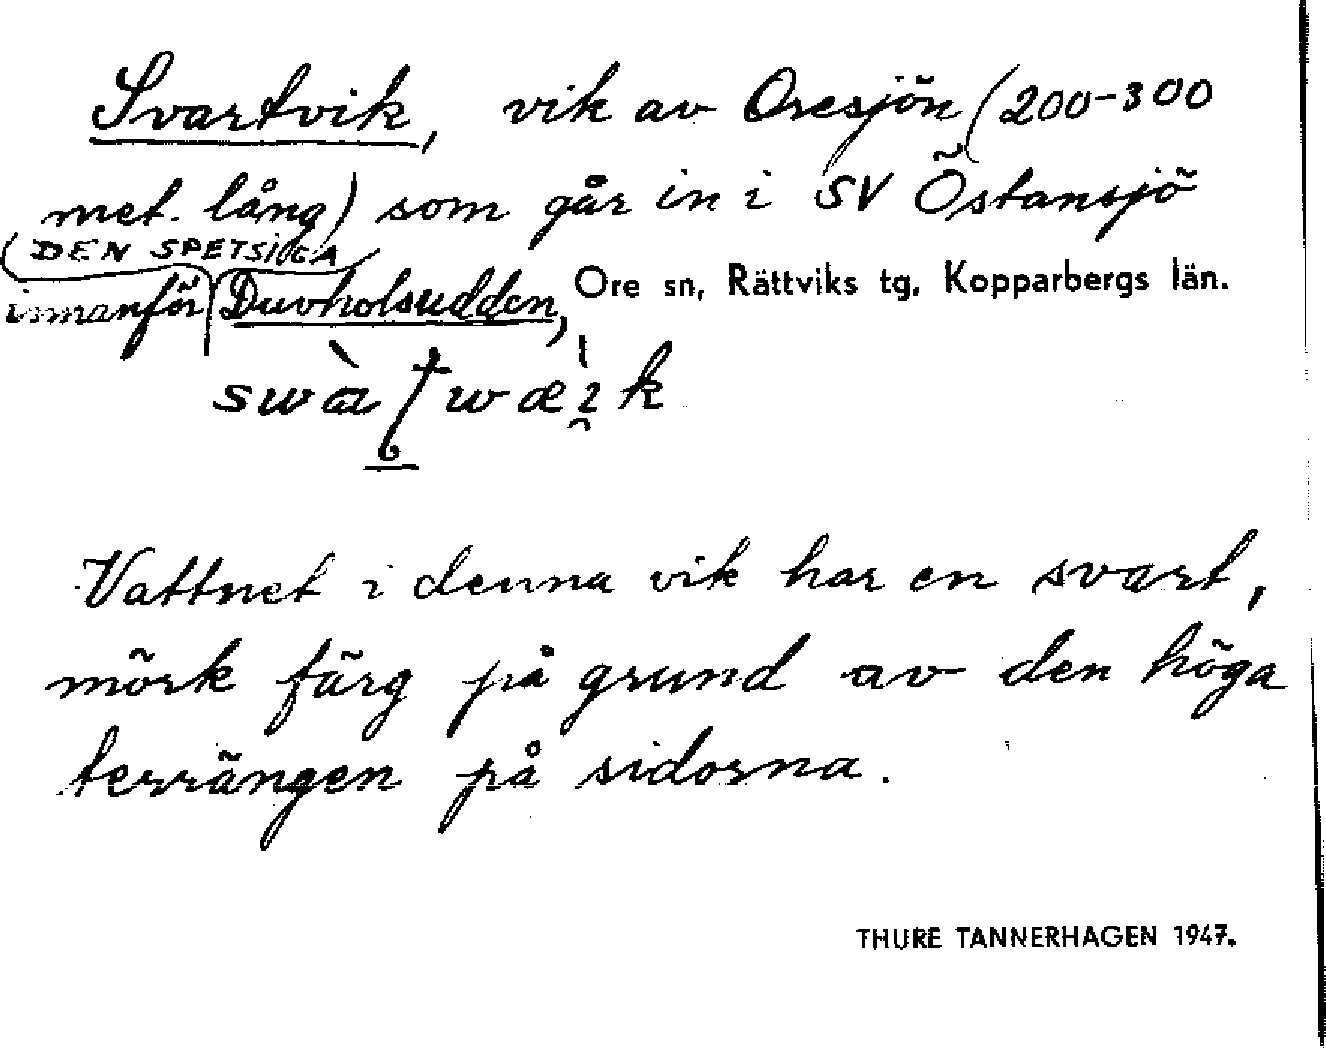 Svartvik, vik av Oresjön (200-300
met. lång) som går in i SV Östansjö
(DEN SPETSIGA
innanför Duvholsudden, Ore sn, Rättviks tg, Kopparbergs län.
Vattnet i denna vik har en svart,
mörk färg på grund av den höga
terrängen på sidorna.
THURE TANNERHAGEN 1947.